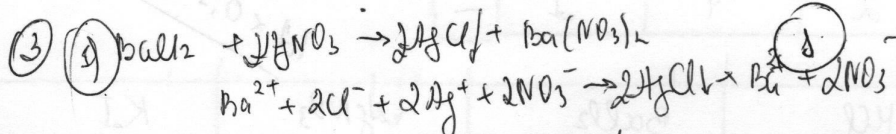 ③ ① BaCl₂ + 2AgNO₃ → 2AgCl↓ + Ba(NO₃)₂
Ba²⁺ + 2Cl⁻ + 2Ag⁺ + 2NO₃⁻ → 2AgCl↓ + Ba²⁺ + 2NO₃⁻